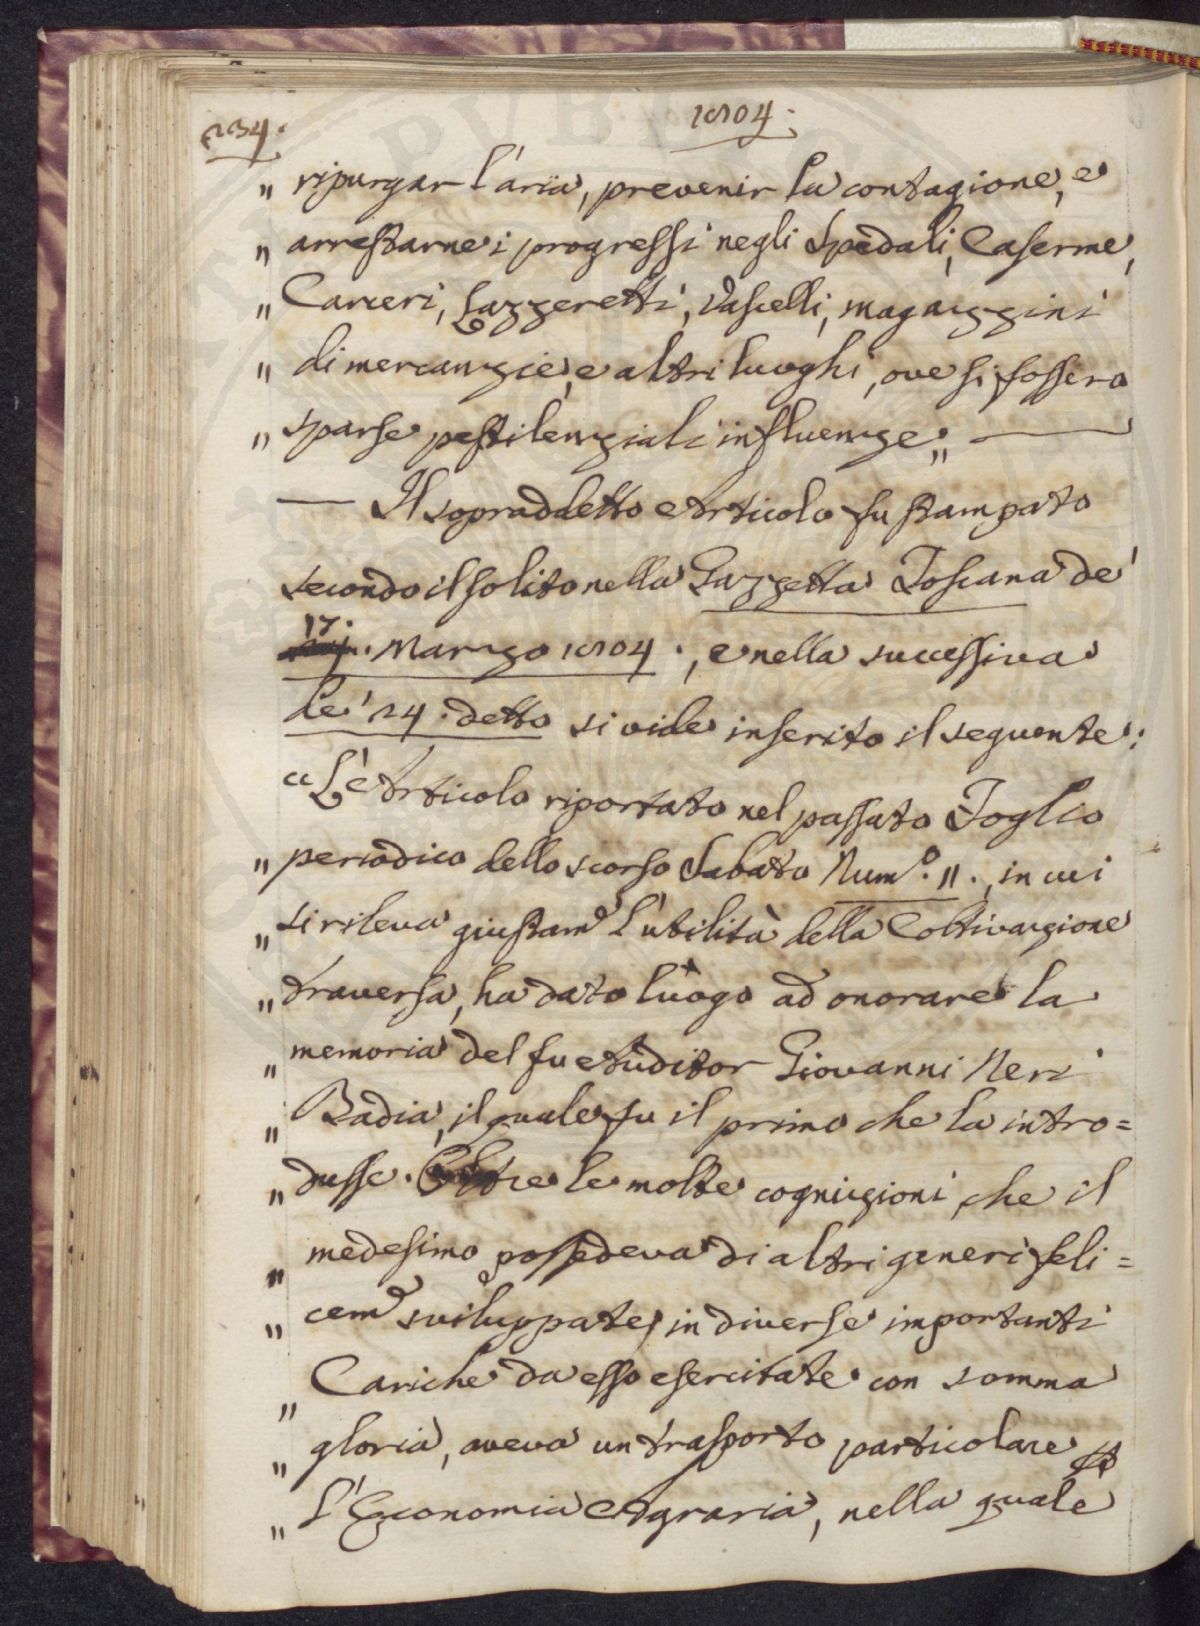 234.
1804.
„ ripurgar l'aria, prevenir la contagione, e
„ arrestarne i progressi negli Spedali, Caserme,
„ Carceri, Lazzeretti, Vascelli, magazzini
„ di mercanzie, e altri luoghi, ove si fossero
„ sparse pestilenziali influenze „ —
— Il sopraddetto Articolo fu stampato
secondo il solito nella Gazzetta Toscana de'
17. Marzo 1804., e nella successiva
de' 24. detto si vide inserito il seguente:
“ L'Articolo riportato nel passato Foglio
„ periodico dello scorso Sabato Num.° 11., in cui
„ si rileva giustam.e l'utilità della Coltivazione
„ traversa, ha dato luogo ad onorare la
„ memoria del fu Auditor Giovanni Neri
„ Badia, il quale fu il primo che la intro=
„ dusse. Oltre le molte cognizioni, che il
„ medesimo possedeva di altri generi feli=
„ cem.e sviluppate in diverse importanti
„ Cariche da esso esercitate con somma
„ gloria, aveva un trasporto particolare p
„ l'Economia Agraria, nella quale